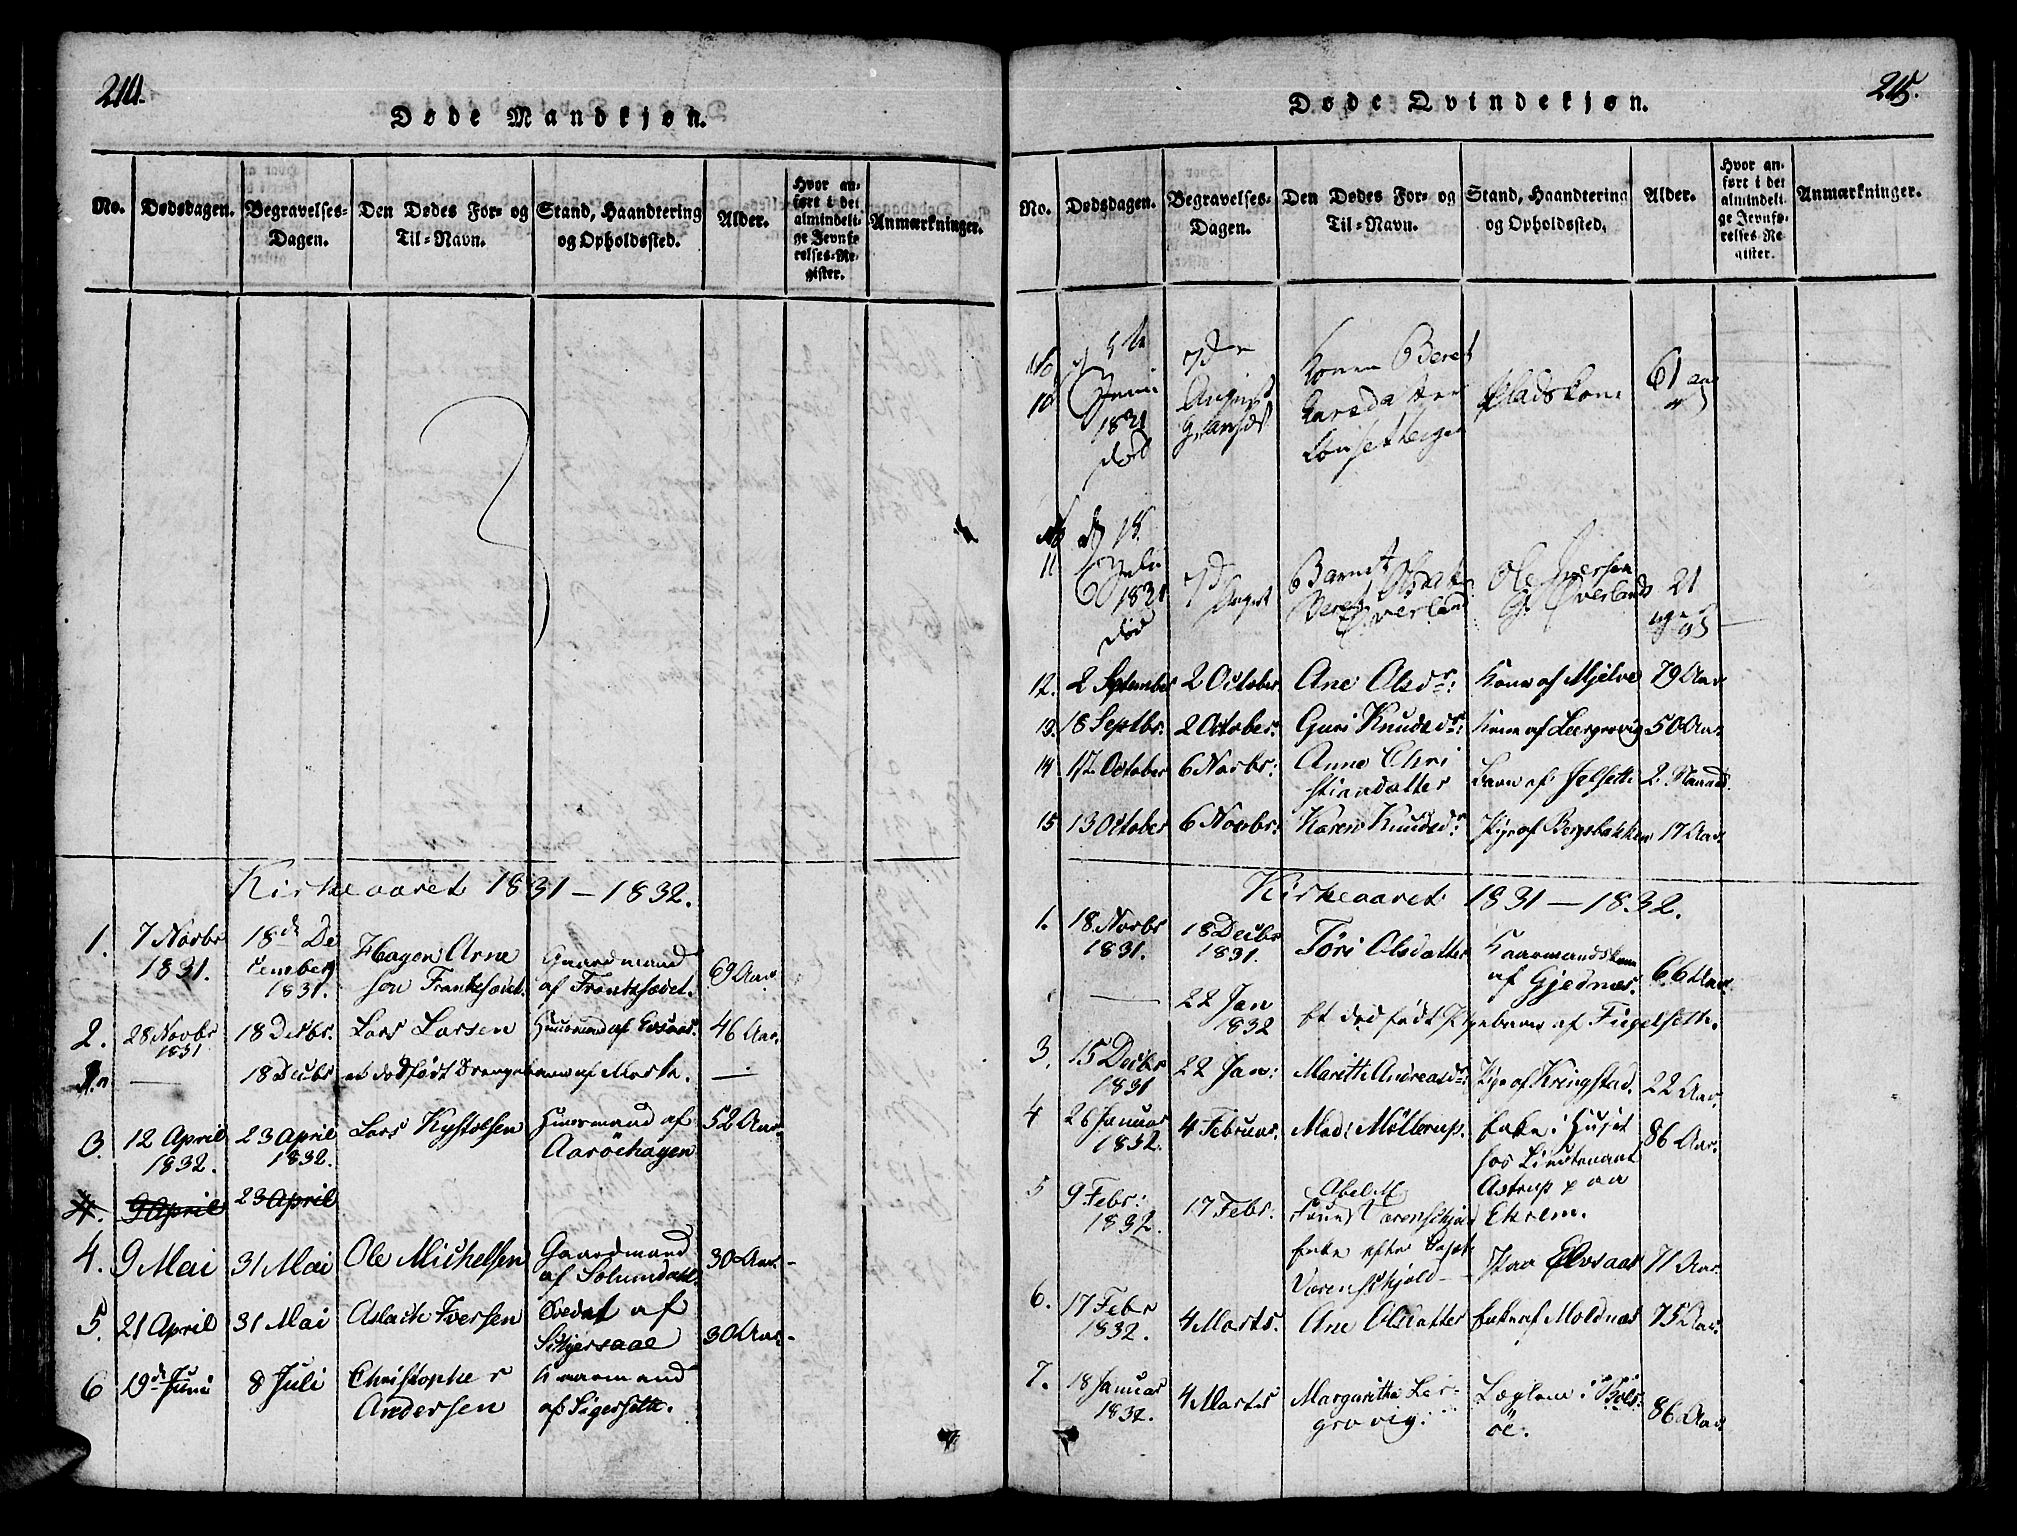 214.
Døde Mandkjøn.
No.
Dødsdagen.
Begravelses-
Dagen.
Den Dødes For- og
Til-Navn.
Stand, Haandtering
og Opholdssted.
Alder.
Hvor an-
ført i det
almindeli-
ge Jevnfø-
relses-Re-
gister.
Anmærkninger.
Kirkeaaret 1831 - 1832.
1. 7 Novbr 1831. 18de December 1831. Hagen Arne
sen Frankhædet. Gaardmand
af Frankhædet. 69 Aar.
2. 28 Novbr 1831 18 Decbr. Lars Larsen Huusmand af 46 Aar.
— 18 Decbr et dødfødt Drengebarn af —
3. 12 April 1832. 23 April 1832. Lars Huusmand af
Aaröehagen 52 Aar.
4. 9 April 23 April
4. 9 Mai 31 Mai Ole Michelsen Gaardmand
af Solemdahl. 30 Aar.
5. 21 April 31 Mai Aslach Iversen Soldat af
30 Aar.
6 19de Juni 8 Juli Christopher
Andersen Kaarmand
af Sigerseth.
215.
Døde Qvindekjøn.
No.
Dødsdagen.
Begravelses-
Dagen.
Den Dødes For- og
Til-Navn.
Stand, Haandtering
og Opholdssted.
Alder.
Hvor an-
ført i det
almindeli-
ge Jevnfø-
relses-Re-
gister.
Anmærkninger.
10 Juni 1831 død 7de August Konen Beret
Larsdatter
Pladskone 61 aar
11 d 18. Juli 1831 død 7d August Barnet
Beret
Øverland Ole Iversen
Øverland 21
uger
12. 2 September 2 October Ane Olsdr: Kone af Mjelve 79 Aar
13. 18 Septbr. 2 October. Guri Knudsdr: Kone af Leergrovig 50 Aar
14 12 October 6 Novbr: Anne Chri
stiansdatter Barn af Jelseth 2 Maaned.
15 13 October 6 Novbr. Karen Knudsdr: Pige af Bergsbakken 17 Aar
Kirkeaaret 1831 - 1832.
1. 18 Novbr 1831. 18 Decbr 1831. Töri Olsdatter Kaarmandskone
af Gjednes. 66 Aar.
— 22 Jan 1832 Et dødfødt Pigebarn af Fugelseth.
3. 15 Decbr 1831 22 Jan: Marith Andreasdr: Pige af Kringstad. 22 Aar.
4 26 Januar 1832. 4 Februar. Mad: Möllerup. Enke i Huset
hos Lieutenant
Astrup paa
Ekrem. 86 Aar.
5 9 Febr: 1832. 17 Febr. Abel M
Enke efter
Varenskjold — paa 71 Aar.
6. 17 Febr 1832. 4 Marts. Ane Olsdatter Enke af Moldnæs 75 Aar.
7. 18 Januar 1832. 4 Marts Margarithe Ler-
grovig. Læglem i Bols-
öe. 86 Aar